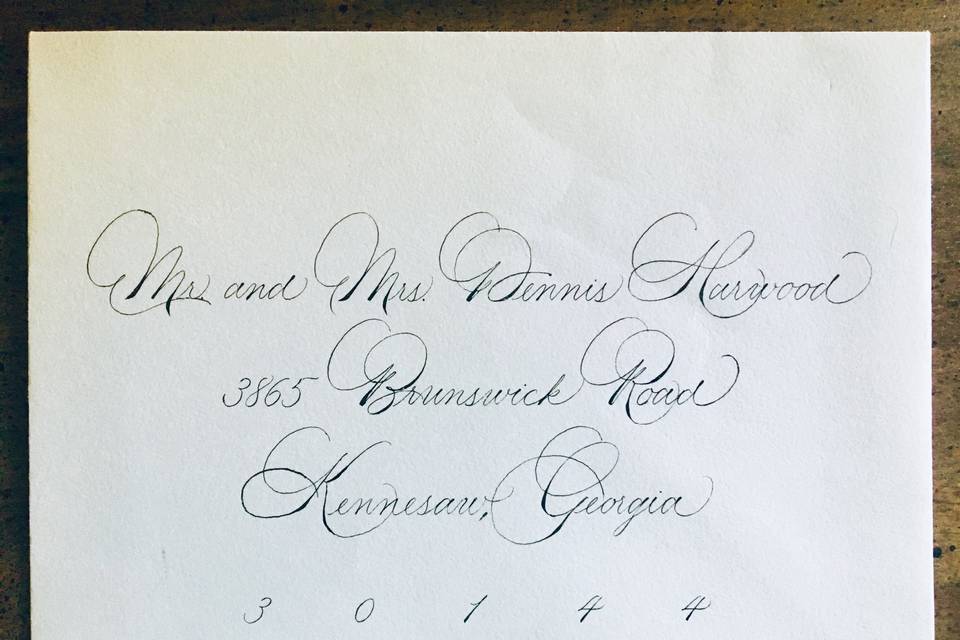 Mr. and Mrs. Dennis Harwood
3865 Brunswick Road
Kennesaw, Georgia
3 0 1 4 4